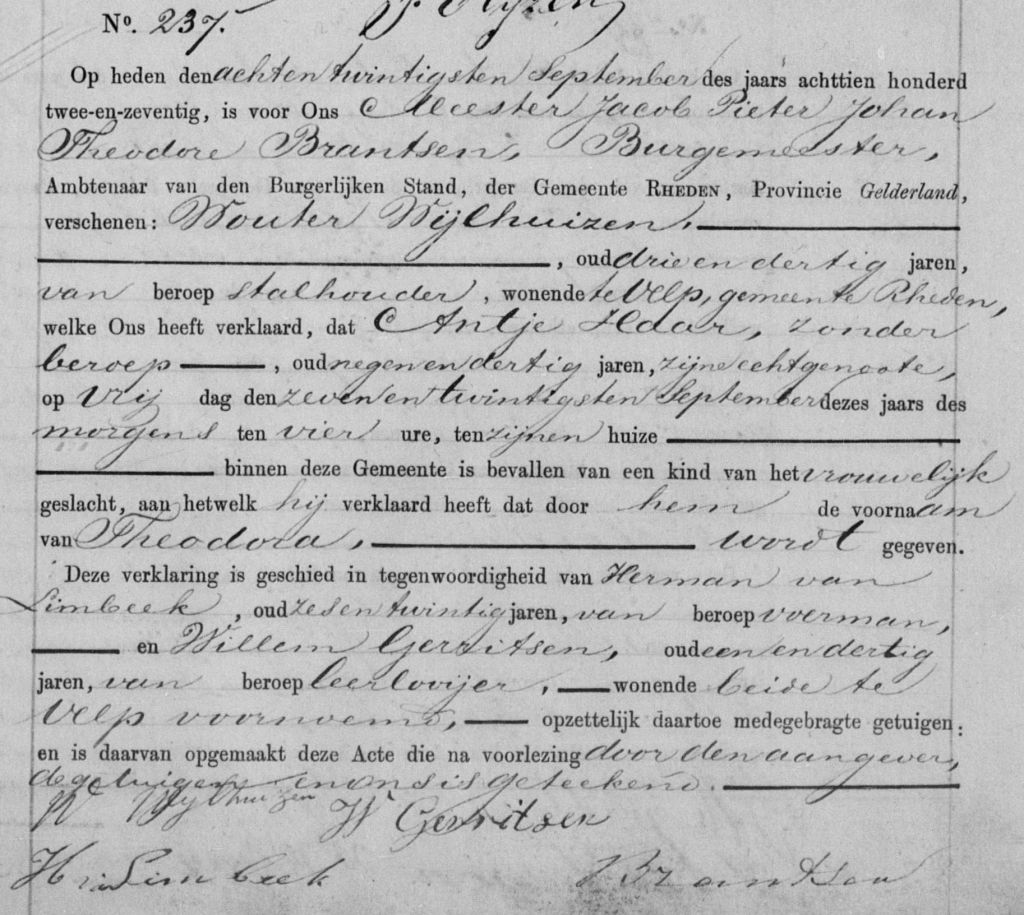 No. 237.
Op heden den achtentwintigsten September des jaars achttien honderd
twee-en-zeventig, is voor Ons Meester Jacob Pieter Johan
Theodore Brantsen, Burgemeester,
Ambtenaar van den Burgerlijken Stand, der Gemeente RHEDEN, Provincie Gelderland,
verschenen: Wouter Wijlhuizen,
, oud drie en dertig jaren,
van beroep stalhouder, wonende te Velp, gemeente Rheden,
welke Ons heeft verklaard, dat Antje Haar, zonder
beroep, oud negen en dertig jaren, zijne echtgenoote,
op Vrij dag den zeven en twintigsten September dezes jaars des
morgens ten vier ure, ten zijnen huize
binnen deze Gemeente is bevallen van een kind van het vrouwelijk
geslacht, aan hetwelk hij verklaard heeft dat door hem de voornaam
van Theodora, wordt gegeven.
Deze verklaring is geschied in tegenwoordigheid van Herman van
Limbeek, oud zes en twintig jaren, van beroep voerman,
en Willem Gerritsen, oud een en dertig
jaren, van beroep leerlooijer, wonende beide te
Velp voornoemd, opzettelijk daartoe medegebragte getuigen:
en is daarvan opgemaakt deze Acte die na voorlezing door den aangever,
de getuigen en ons is geteekend.
W Wijlhuizen
W Gerritsen
H van Limbeek
Brantsen